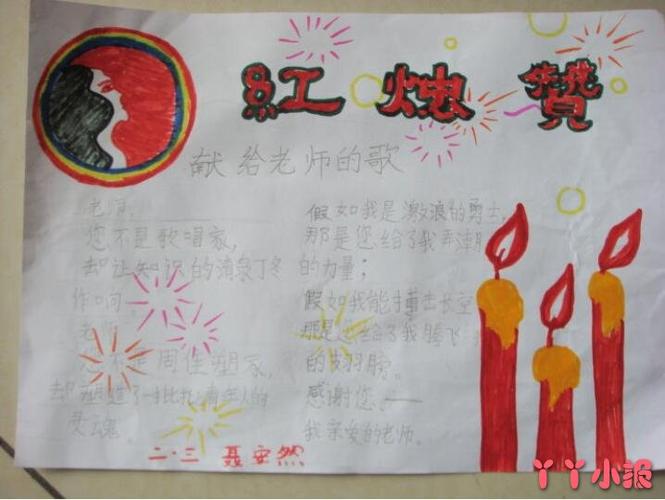 红烛赞
献给老师的歌
老师,
您不是歌唱家,
却让知识的清泉丁冬
作响。
老师
您不是周佳塑家,
却塑造了一批批青年人的
灵魂。
假如我是激浪的勇士,
那是您给了我弄潮
的力量；
假如我能搏击长空
那是您给了我腾飞
的翅膀。
感谢您,——
我亲爱的老师。
二·三 聂安然
丫丫小报